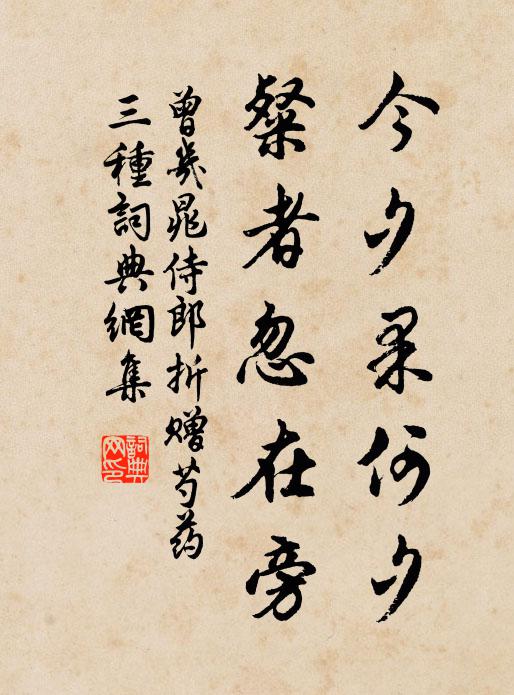 今夕果何夕
粲者忽在旁
曾幾晁侍郎折赠芍药
三種詞典網集
詞典
网印